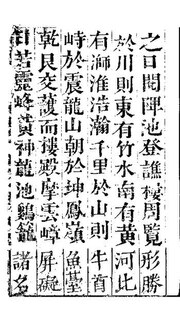 之日閱暉池登譙樓周覽形勝
於川則東有竹水南有黃河北
有溮淮浩瀚千里於山則牛首
峙於震龍山朝於坤鳳嶺魚臺
乾艮交護而樓殿摩雲嶂屏礙
日若靈峰黃神龍池鷄籠諸名